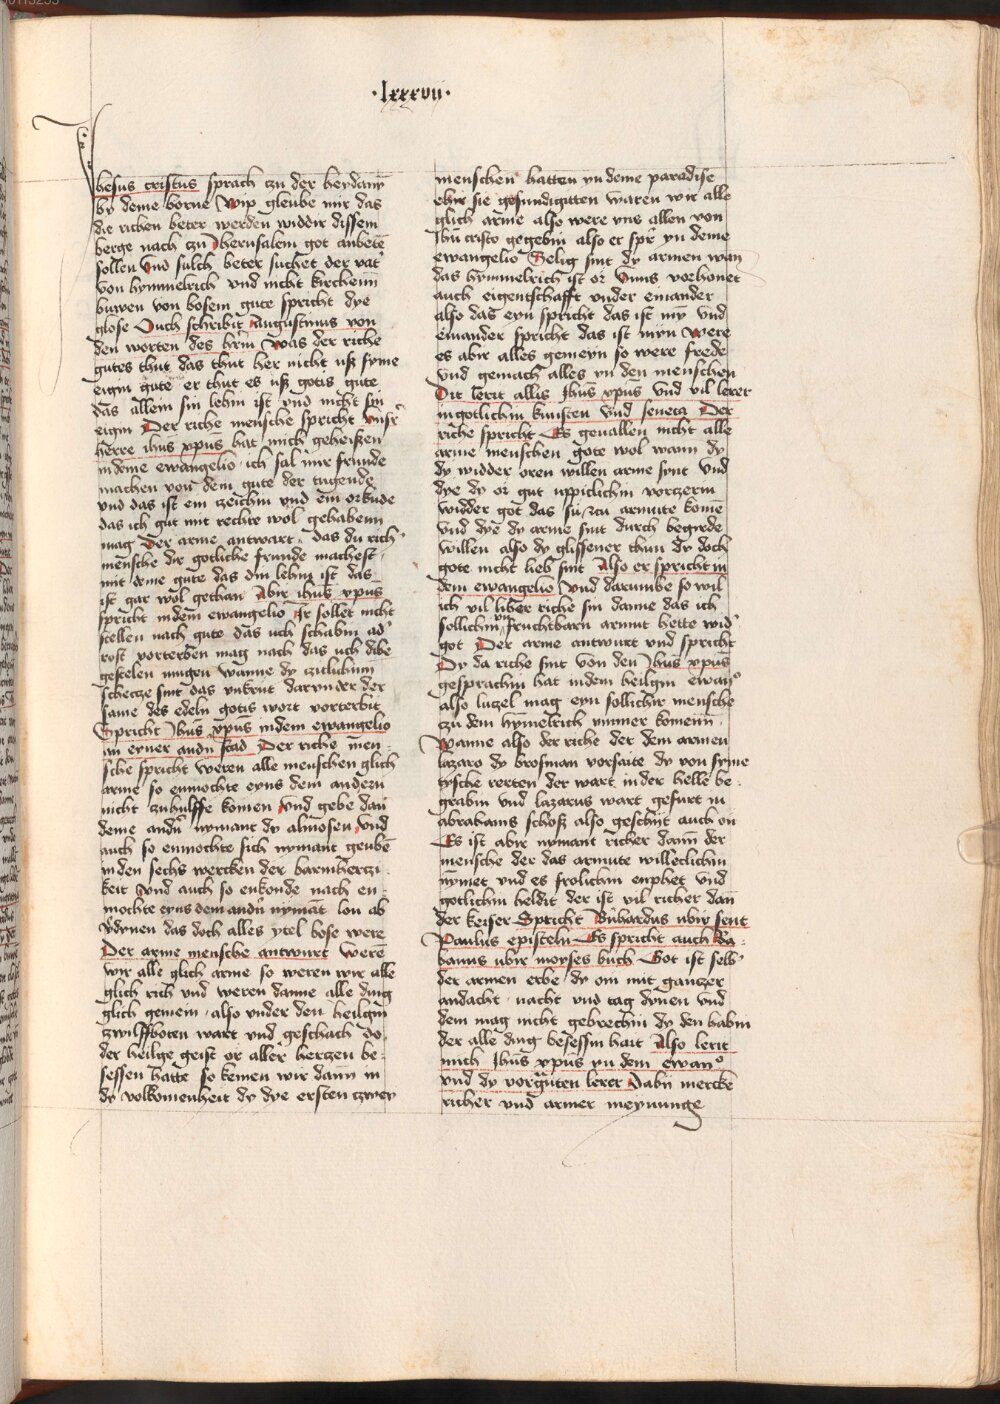 ·lxxxvii·
Jhesus cristus sprach czu der heydanȳ
by deme borne Wip gleube mir das
die richen beter werden widdir dissem
berge nach czu Jherusalem got anbetē
sollen Und sulch beter suchet der vatʼ
von hymmelrich vnd nicht kircheinn
buwen von bosem gute spricht dye
glose Ouch schribit Augustinus von
den worten des hʼrn Was der riche
gutes thut das thut her nicht uß syme
eigin gute er thut es uß gotis gute
das allein sin lehin ist vnd nicht syn
eigin Der riche mensche spricht Vnsʼr
herre ihus xp̄us hat mich geheißen
in deme ewangelio ich sal mir frunde
machen von dem gute der tugende
vnd das ist ein zeichin vnd ein orkude
das ich gut mit rechte wol gehabenn
mag Der arme antwart das du richʼ
mensche dir gotliche frunde machest
mit deme gute das din lehin ist das
ist gar wol gethan Abir ihus xp̄us
spricht in dem ewangelio Ir sollet nicht
stellen nach gute das uch schabin adʼ
rost vorterben mag nach das uch dibe
gestelen mugen wanne dy zitlichinn
schecze sint das vnkrut darvnder der
same des edeln gotis wort vorterbit
Spricht Jhūs xp̄us in dem ewangelio
an eyner andn stad Der riche men
sche spricht weren alle menschen glich
arme so enmochte eyns dem andern
nicht zuhulffe komen Und gebe dan
deme andn̄ nymant dy almosen Und
auch so enmochte sich nymant geubē
in den sechs wercken der barmherczi
keit Und auch so enkonde nach en
mochte eyns dem andn̄ nymāt lon ab
vʼdynen das doch alles ytel bose were
Der arme mensche antwurt Werē
wir alle glich arme so weren wir alle
glich rich vnd weren danne alle ding
glich gemein also vnder den heilgin
zwilffboten wart vnd geschach do
der heilge geist or aller herczen be
sessen hatte so kemen wir dann in
dy volkomenheit dy dye ersten czwey
menschen hatten yn deme paradise
ehir sie gesundigitten waren wir alle
glich arme also were vns allen von
Jhū cristo gegebin also er sprʼ yn deme
ewangelio Selig sint dy armen wan
das hymmelrich ist or Unns vorhonet
auch eigentschafft vnder einander
also das eyn spricht das ist my vnd
einander spricht das ist myn Were
es abir alles gemeyn so were frede
vnd gemach alles yn den menschen
Dit lerit allis Jhūs xp̄us Und vil lerer
in gotlichin kunsten Und Seneca Der
riche spricht Es geuallen nicht alle
arme menschen gote wol wann dy
dy widder oren willen arme synt Und
dye dy or gut uppiclichin vorczern
widder got das su zcu armute komē
Und dye dy arme sint durch begrede
willen also dy glissener thun dy doch
gote nicht lieb sint Also er spricht in
dem ewangelio Und darumbe so wil
ich vil liber riche sin danne das ich
sollichin vn fruchtbarn armut hette widʼ
got Der arme antwurt vnd spricht
Dy da riche sint von den Jhūs xp̄us
gesprachin hat in dem heilgin ewanᵒ
also luzel mag eyn sollichir mensche
zu dem hymelrich ummer komenn
Wanne also der riche der dem armen
lazaro dy brosman vorsaite dy von syme
tysche rerten der wart in der helle be
grabin vnd lazarus wart gefurt in
abrahams schoß also geschit auch on
Es ist abir nymant richer dann der
mensche der das armute willeclichin
nymet vnd es frolichin enphet vnd
gotlichin heldit der ist vil richer dan
der keiser Spricht Bn̄hardus ubir sent
Paulus episteln Es spricht auch Ra
banus ubir moyses buch Got ist selbʼ
der armen erbe dy om mit ganczer
andacht nacht vnd tag dynen Und
dem mag nicht gebrechin dy den habin
der alle ding besessin hait Also lerit
mich Jhūs xp̄us yn dem ewanᵒ
vnd dy vorgn̄ten lerer Dabn̄ mercke
richer vnd armer meynunge